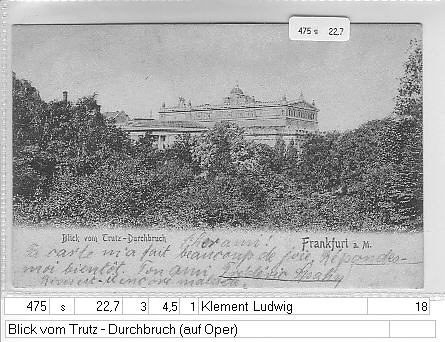 475 s 22,7
Blick vom Trutz-Durchbruch
Frankfurt a. M.
Cher ami!
Ta carte m'a fait beaucoup de joie. Répondez-
moi bientôt. Ton ami,
encore malade.
475 s 22,7 3 4,5 1 Klement Ludwig 18
Blick vom Trutz - Durchbruch (auf Oper)